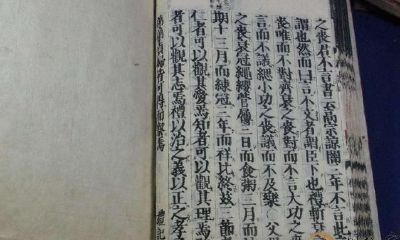 之喪君不言書云高宗諒闇三年不言此
謂也然而曰言不文者謂臣下也禮斬衰
喪唯而不對齊衰之喪對而不言大功之
言而不議緦小功之喪議而不及樂父
之喪衰冠繩纓菅屨三日而食粥三月而
期十三月而練冠三年而祥比終茲三節
仁者可以觀其愛焉知者可以觀其理焉
者可以觀其志焉禮以治之義以正之孝
弟弟貞婦皆可得而察焉
禮記